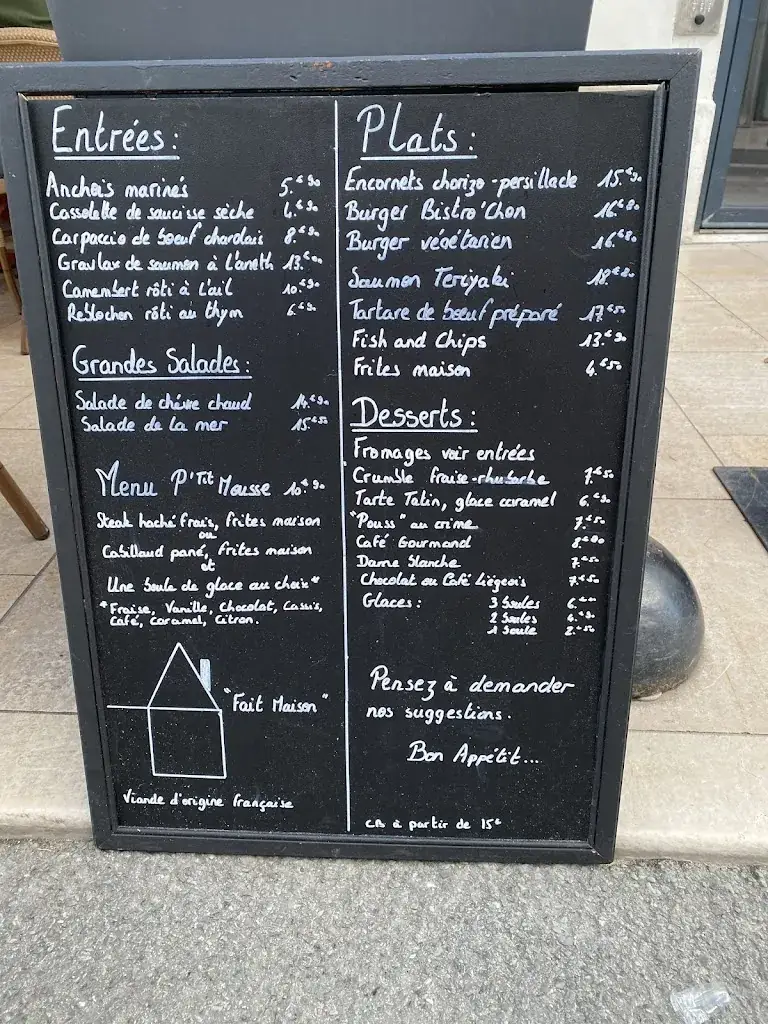 Entrées :
Anchois marinés 5.€90
Cassolette de saucisse sèche 4.€90
Carpaccio de boeuf charolais 8.€90
Gravlax de saumon à l'aneth 13.€00
Camembert rôti à l'ail 10.€90
Reblochon rôti au thym 6.€90
Grandes Salades :
Salade de chèvre chaud 14.€90
Salade de la mer 15€50
Menu P'Tit Mousse 10.€90
Steak haché frais, frites maison
ou
Cabillaud pané, frites maison
et
Une boule de glace au choix*
*Fraise, Vanille, Chocolat, Cassis,
Café, Caramel, Citron.
"Fait Maison"
Viande d'origine française
Plats :
Encornets chorizo-persillade 15.€90
Burger Bistro'Chon 16€80
Burger végétarien 16.€80
Saumon Teriyaki 18.€80
Tartare de boeuf préparé 17.€50
Fish and Chips 13.€90
Frites maison 4.€50
Desserts :
Fromages voir entrées
Crumble fraise-rhubarbe 7.€50
Tarte Tatin, glace caramel 6.€90
"Pouss" au crime 7.€50
Café Gourmand 8.€80
Dame blanche 7.€50
Chocolat ou Café Liégeois 7.€50
Glaces : 3 boules 6.€00
2 boules 4.€90
1 boule 2.€50
Pensez à demander
nos suggestions.
Bon Appétit...
CB à partir de 15€